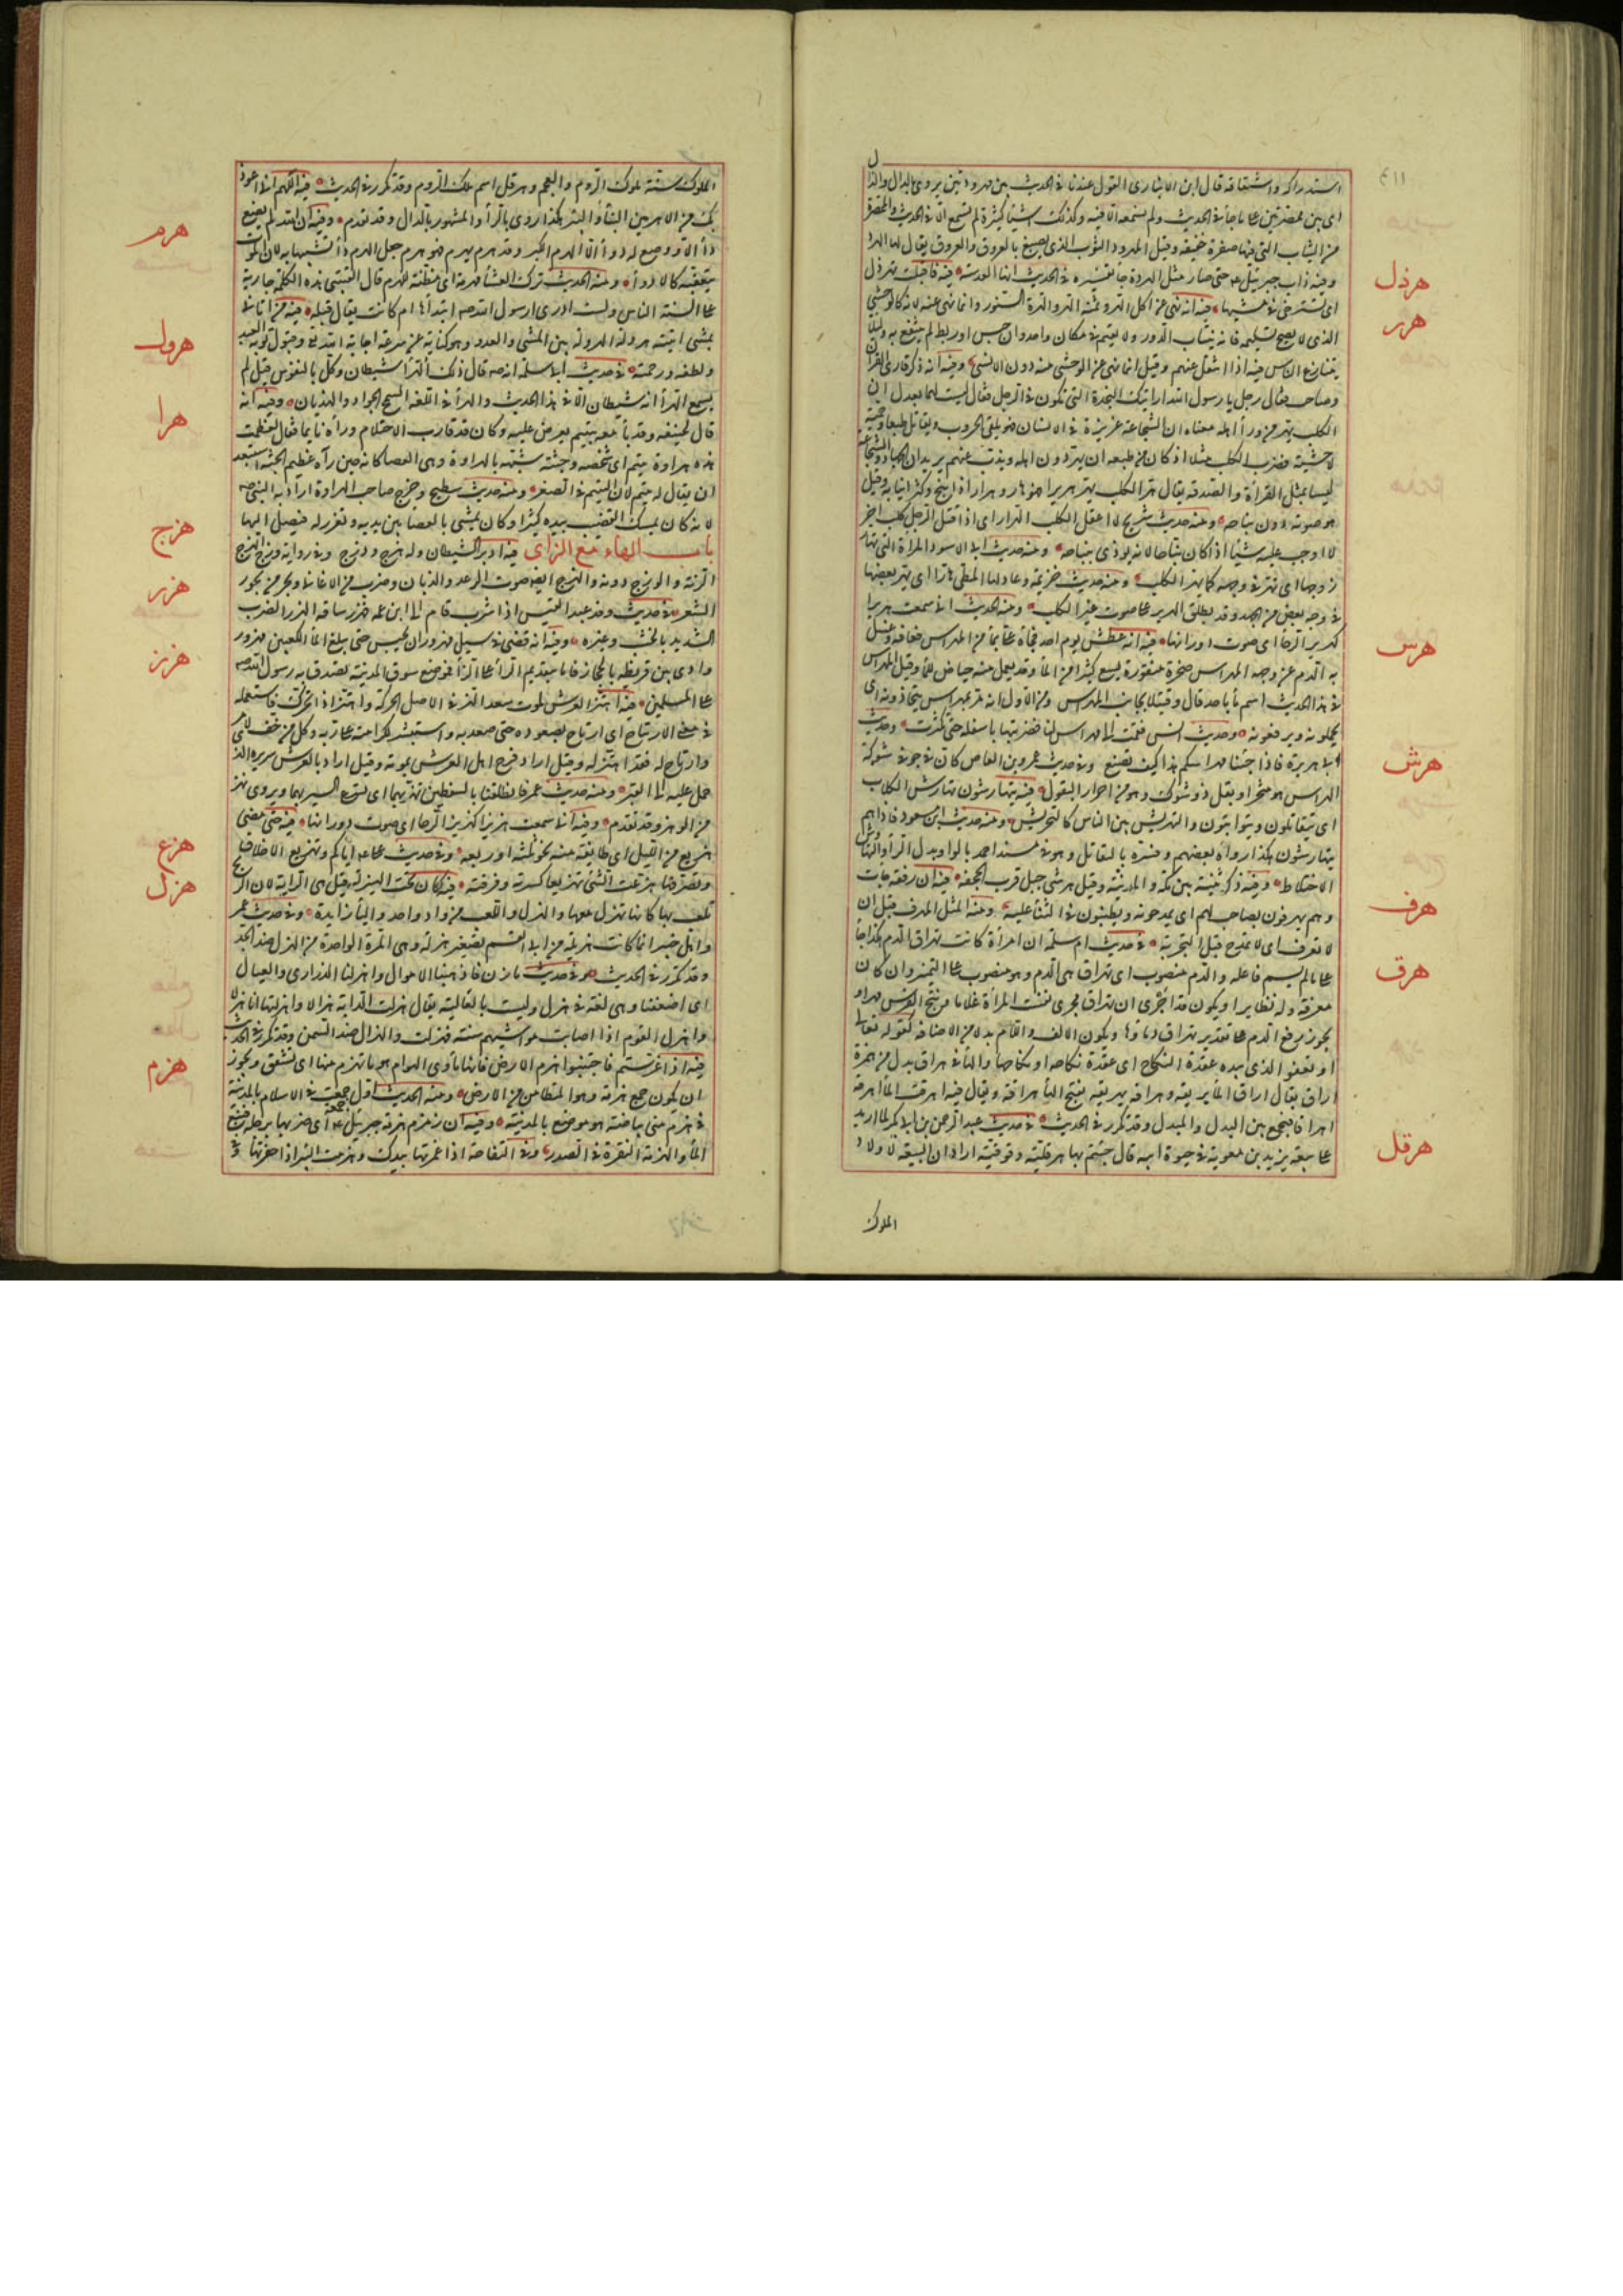 استدراكه واشتقاقه قال ابن الانباري القول عندنا في الحديث بين مهرودتين يروى بالدال والذال
اي بين ممصرتين على ما جاء في الحديث ولم نسمعه الا فيه وكذلك اشياء كثيرة لم تسمع الا في الحديث والممصرة
من الثياب التي فيها صفرة خفيفة وقيل المهرود الثوب الذي يصبغ بالعروق والعروق يقال لها الهرد
هرذل
وفيه ذاب جبريل عم حتى صار مثل الهردة جا تفسيره في الحديث انها العدسة فيه فاقبلت تهرذل
هرر
اي تسترخي في مشيها فيه انه نهى عن اكل الهر وثمنه الهر والهرة السنور وانما نهى عنه لانه كالوحشي
الذي لا يصح تسليمه فانه ينتاب الدور ولا يقيم في مكان واحد وان حبس او ربط لم ينتفع به ولئلا
يتنازع الناس فيه اذا انتقل عنهم وقيل انما نهى عن الوحشي منه دون الانسي وفيه انه ذكر قارئ القرآن
وصاحب فقال رجل يا رسول الله ارايتك النجدة التي تكون في الرجل فقال ليست لهما بعدل ان
الكلب يهر من وراء اهله معناه ان الشجاعة غريزة في الانسان فهو يلقى الحروب ويقاتل طبعا وحمية
لا حسبة فضرب الكلب مثلا اذ كان من طبعه ان يهر دون اهله ويذب عنهم يريد ان الجهاد والشجاعة
ليسا بمثل القراءة والصدقة يقال هر الكلب يهر هريرا فهو هار وهرار اذا نبح وكشر انيابه وقيل
هو صوته دون نباحه ومنه حديث شريح لا اعقل الكلب الهرار اي اذا قتل الرجل كلب اخر
لا اوجب عليه شيئا اذا كان نباحا لانه يوذي بنباحه ومنه حديث ابي الاسود المراة التي تهار
زوجها اي تهر في وجهه كما يهر الكلب ومنه حديث خزيمة وعاد لها المطي هارا اي يهر بعضها
في وجه بعض من الجهد وقد يطلق الهرير على صوت غير الكلب ومنه الحديث اني سمعت هريرا
هرس
كهرير الرحا اي صوت دورانها فيه انه عطش يوم احد فجاه علي بماء من المهراس فعافه وغسل
به الدم عن وجهه المهراس صخرة منقورة يسع كثيرا من الماء وقد يعمل منه حياض للماء وقيل المهراس
في هذا الحديث اسم ماء باحد قال وقتيلا بجانب المهراس ومن الاول انه مر بمهراس يتجاذونه اي
يحملونه ويرفعونه وحديث انس فقمت الى مهراس لنا فضربتها باسفله حتى تكسرت وحديث
هرش
ابي هريرة فاذا جئنا مهراسكم هذا كيف نصنع وفي حديث عمرو بن العاص كان في جوفه شوكة
الهراس هو شجر او بقل ذو شوك وهو من احرار البقول فيه يتهارشون تهارش الكلاب
اي يتقاتلون ويتواثبون والتهريش بين الناس كالتحريش ومنه حديث ابن مسعود فاذا هم
يتهارشون هكذا رواه بعضهم وفسره بالتقاتل وهو في مسند احمد بالواو بدل الراء والتهاوش
هرف
الاختلاط وفيه ذكر ثنية بين مكة والمدينة وقيل هرشى جبل قرب الجحفة فيه ان رفقة جات
وهم يهرفون بصاحب لهم اي يمدحونه ويطنبون في الثناء عليه ومنه المثل لا تهرف قبل ان
هرق
لا تعرف اي لا تمدح قبل التجربة في حديث ام سلمة ان امراة كانت تهراق الدم هكذا جا
على ما لم يسم فاعله والدم منصوب اي تهراق هي الدم وهو منصوب على التمييز وان كان
معرفة وله نظاير او يكون قد اجرى ان تهراق مجرى نفست المراة غلاما ونتج الفرس مهرا و
يجوز رفع الدم على تقدير تهراق دماوها ويكون الالف واللام بدلا من الاضافة كقوله تعالى
او يعفو الذي بيده عقدة النكاح اي عقدة نكاحه او نكاحها والهاء في هراق بدل من همزة
اراق يقال اراق الماء يريقه وهراقه يهريقه بفتح الهاء هراقة ويقال فيه اهرقت الماء اهرقه
هرقل
اهراقا فيجمع بين البدل والمبدل وقد تكرر في الحديث في حديث عبد الرحمن بن ابي بكر لما اريد
على بيعة يزيد بن معوية في حيوة ابيه قال جئتم بها هرقلية وقوقية اراد ان البيعة لاولاد
الملوك
الملوك سنة ملوك الروم والعجم وهرقل اسم ملك الروم وقد تكرر في الحديث فيه اللهم اني اعوذ
هرم
بك من الاهرمين البناء والبئر هكذا روي بالراء والمشهور بالدال وقد تقدم وفيه ان الله لم يضع
داء الا ووضع له دواء الا الهرم الهرم الكبر وقد هرم يهرم فهو هرم جعل الهرم داء تشبيها به لان الموت
يتعقبه كالادواء ومنه الحديث ترك العشاء مهرمة اي مظنة للهرم قال القتيبي هذه الكلمة جارية
هرول
على السنة الناس ولست ادري ارسول الله صه ابتداها ام كانت يقال قبله فيه من اتاني
يمشي اتيته هرولة الهرولة بين المشي والعدو وهو كناية عن سرعة اجابة الله تع وقبول توبة العبد
هرا
ولطفه ورحمته في حديث ابي سلمة انه صه قال ذلك الهراء شيطان وكل بالنفوس قيل لم
يسمع الهراء انه شيطان الا في هذا الحديث والهراء في اللغة السمح الجواد والهذيان وفيه انه
قال لحنيفة وقد جاء معه بيتيم يعرض عليه وكان قد قارب الاحتلام وراه نايما فقال لعظمت
هذه هراوة يتيم اي شخصه وجثته شبهه بالهراوة وهي العصا كانه حين رآه عظيم الجثة استبعد
ان يقال له يتيم لان اليتم في الصغر ومنه حديث سطيح وخرج صاحب الهراوة اراد به النبي صه
لانه كان يمسك القضيب بيده كثيرا وكان يمشى بالعصا بين يديه وتغرز له فيصلي اليها
هزج
باب الهاء مع الزاى فيه ادبر الشيطان وله هزج ودزج وفي رواية وزج الهزج
هزر
الرنة والوزج دونه والهزج ايضا صوت الرعد والذبان وضرب من الاغاني وبحر من بحور
الشعر في حديث وفد عبد القيس اذا شرب قام الى ابن عمه فهزر ساقه الهزر الضرب
الشديد بالخشب وغيره وفيه انه قضى في سيل مهزور ان يحبس حتى يبلغ الماء الكعبين مهزور
هزز
وادي بني قريظة بالحجاز فاما بتقديم الراء على الزاء فموضع سوق المدينة تصدق به رسول الله صه
على المسلمين فيه اهتز العرش لموت سعد الهز في الاصل الحركة واهتز اذا تحرك فاستعمله
في معنى الارتياح اي ارتاح بصعوده حتى صعد به واستبشر لكرامته على ربه وكل من خف لامر
وارتاح له فقد اهتز له وقيل اراد فرح اهل العرش بموته وقيل اراد بالعرش سريره الذي
حمل عليه الى القبر ومنه حديث عمر فانطلقنا بالسفطين نهز بهما اي نسرع السير بهما ويروى نهز
من الوهز وقد تقدم وفيه اني سمعت هزيزا كهزيز الرحا اي صوت دورانها فيه حتى مضى
هزع
هزيع من الليل اي طايفة منه نحو ثلثه او ربعه وفي حديث علي عم اياكم وتهزيع الاخلاق
هزل
وتصرفها هزعت الشئ تهزيعا كسرته وفرقته فيه كان تحت الهيزلة قيل هي الراية لان الريح
تلعب بها كانها تهزل معها والهزل واللعب من واد واحد والياء زايدة وفي حديث عمر
واهل خيبر انما كانت هزيلة من ابي القسم تصغير هزلة وهي المرة الواحدة من الهزل ضد الجد
وقد تكرر في الحديث وفي حديث مازن فاذهبنا الاموال واهزلنا الذراري والعيال
اي اضعفنا وهي لغة في هزل وليست بالعالية يقال هزلت الدابة هزالا واهزلتها انا هزلا
واهزل القوم اذا اصابت مواشيهم سنة فهزلت والهزال ضد السمن وقد تكرر في الحديث
هزم
فيه اذا عرستم فاجتنبوا هزم الارض فانها ماوى الهوام هو ما تهزم منها اي تشقق ويجوز
ان يكون جمع هزمة وهو المتطامن من الارض ومنه الحديث اول جمعة جمعت في الاسلام بالمدينة
في هزم بني بياضة هو موضع بالمدينة وفيه ان زمزم هزمة جبرئيل عم اي ضربها برجله فنبع
الماء والهزمة النقرة في الصدر وفي التفاحة اذا غمزتها بيدك وهزمت البئر اذا حفرتها